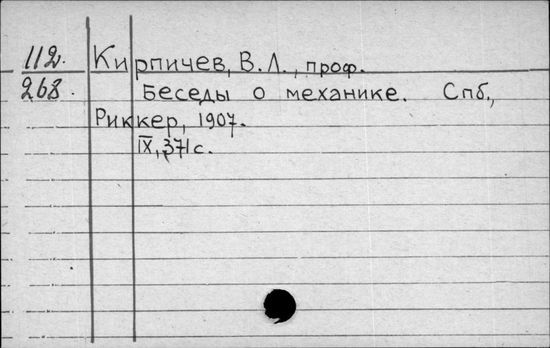 112.
Кирпичев, В.Л., проф.
268.
Беседы о механике. Спб.,
Риккер, 1907.
IX, 371 с.